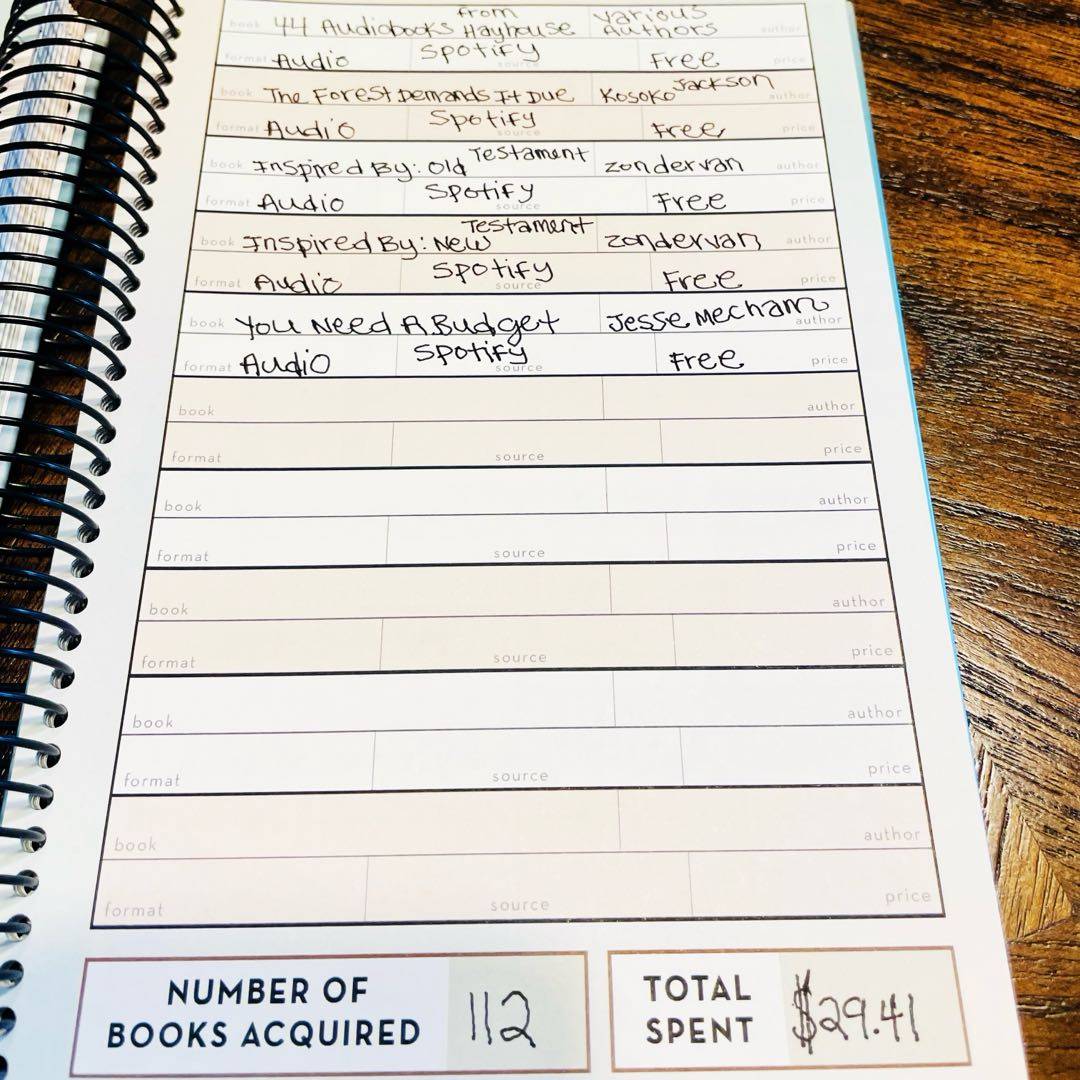 book 44 Audiobooks from Hayhouse Various Authors author
format Audio Spotify source Free price
book The Forest Demands It Due Kosoko Jackson author
format Audio Spotify source Free price
book Inspired By: Old Testament Zondervan author
format Audio Spotify source Free price
book Inspired By: New Testament Zondervan author
format Audio Spotify source Free price
book You Need A Budget Jesse Mecham author
format Audio Spotify source Free price
book author
format source price
book author
format source price
book author
format source price
book author
format source price
book author
format source price
NUMBER OF
BOOKS ACQUIRED 112
TOTAL
SPENT $29.41